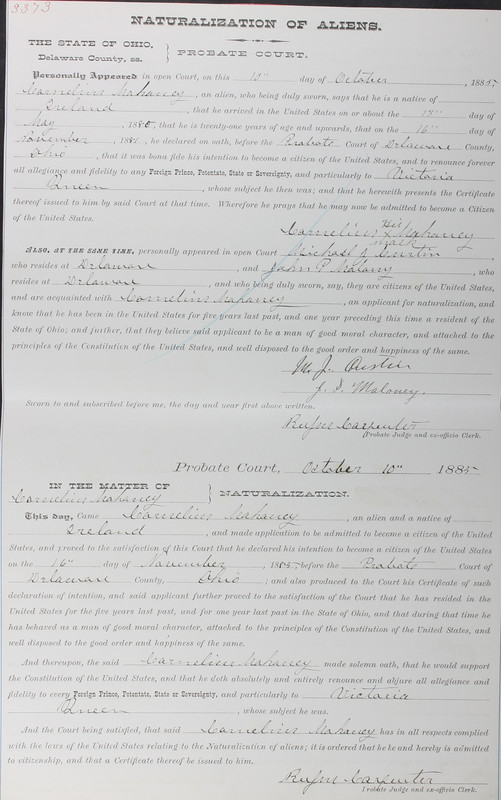 3373
NATURALIZATION OF ALIENS.
THE STATE OF OHIO,
Delaware County, ss.
PROBATE COURT.
Personally Appeared in open Court, on this 10" day of October , 1885
Cornelius Mahaney , an alien, who being duly sworn, says that he is a native of
Ireland , that he arrived in the United States on or about the day of
May , 1880, that he is twenty-one years of age and upwards, that on the 16" day of
November , 188 , he declared on oath, before the Probate Court of Delaware County,
Ohio , that it was bona fide his intention to become a citizen of the United States, and to renounce forever
all allegiance and fidelity to any Foreign Prince, Potentate, State or Sovereignty, and particularly to Victoria
Queen , whose subject he then was; and that he herewith presents the Certificate
thereof issued to him by said Court at that time. Wherefore he prays that he may now be admitted to become a Citizen
of the United States.
Cornelius His x mark Mahaney
ALSO, AT THE SAME TIME, personally appeared in open Court Michael J.
who resides at Delaware , and John P. Malony , who
resides at Delaware , and who being duly sworn, say, they are citizens of the United States,
and are acquainted with Cornelius Mahaney , an applicant for naturalization, and
know that he has been in the United States for five years last past, and one year preceding this time a resident of the
State of Ohio; and further, that they believe said applicant to be a man of good moral character, and attached to the
principles of the Constitution of the United States, and well disposed to the good order and happiness of the same.
M. J.
J. P. Maloney.
Sworn to and subscribed before me, the day and year first above written.
Rufus Carpenter
Probate Judge and ex-officio Clerk.
Probate Court, October 10" 1885
IN THE MATTER OF
Cornelius Mahaney
NATURALIZATION.
This day, Came Cornelius Mahaney , an alien and a native of
Ireland , and made application to be admitted to become a citizen of the United
States, and proved to the satisfaction of this Court that he declared his intention to become a citizen of the United States
on the 16" day of November , 188 before the Probate Court of
Delaware County, Ohio ; and also produced to the Court his Certificate of such
declaration of intention, and said applicant further proved to the satisfaction of the Court that he has resided in the
United States for the five years last past, and for one year last past in the State of Ohio, and that during that time he
has behaved as a man of good moral character, attached to the principles of the Constitution of the United States, and
well disposed to the good order and happiness of the same.
And thereupon, the said Cornelius Mahaney made solemn oath, that he would support
the Constitution of the United States, and that he doth absolutely and entirely renounce and abjure all allegiance and
fidelity to every Foreign Prince, Potentate, State or Sovereignty, and particularly to Victoria
Queen , whose subject he was.
And the Court being satisfied, that said Cornelius Mahaney has in all respects complied
with the laws of the United States relating to the Naturalization of aliens; it is ordered that he be and hereby is admitted
to citizenship, and that a Certificate thereof be issued to him.
Rufus Carpenter
Probate Judge and ex-officio Clerk.